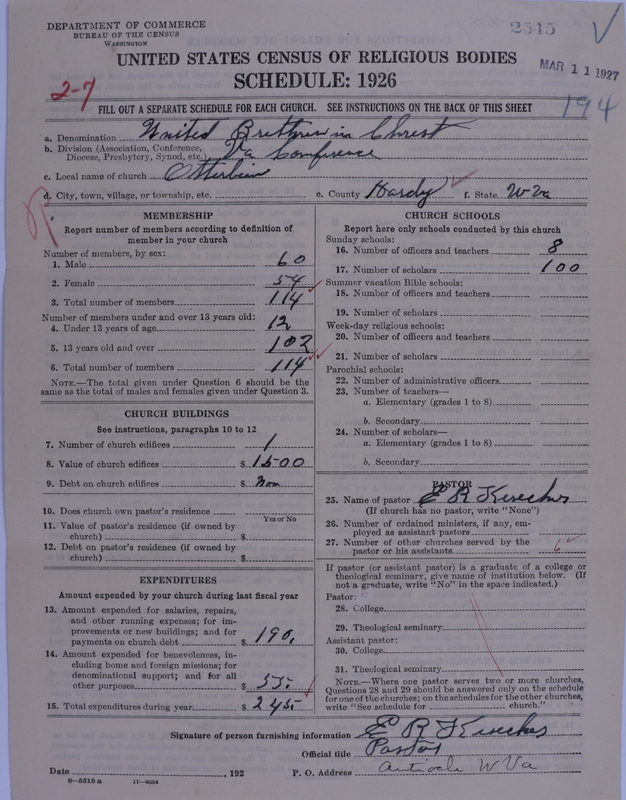 DEPARTMENT OF COMMERCE
BUREAU OF THE CENSUS
WASHINGTON
2545
UNITED STATES CENSUS OF RELIGIOUS BODIES
MAR 11 1927
SCHEDULE: 1926
2-7
194
FILL OUT A SEPARATE SCHEDULE FOR EACH CHURCH. SEE INSTRUCTIONS ON THE BACK OF THIS SHEET
a. Denomination United Brethren in Christ
b. Division (Association, Conference,
Diocese, Presbytery, Synod, etc.) Va Conference
c. Local name of church Otterbein
d. City, town, village, or township, etc. e. County Hardy f. State W Va
MEMBERSHIP
Report number of members according to definition of
member in your church
Number of members, by sex:
1. Male 60
2. Female 54
3. Total number of members 114
Number of members under and over 13 years old:
4. Under 13 years of age 12
5. 13 years old and over 102
6. Total number of members 114
NOTE.—The total given under Question 6 should be the
same as the total of males and females given under Question 3.
CHURCH BUILDINGS
See instructions, paragraphs 10 to 12
7. Number of church edifices 1
8. Value of church edifices $ 1500
9. Debt on church edifices $ Non
10. Does church own pastor's residence
Yes or No
11. Value of pastor's residence (if owned by
church) $
12. Debt on pastor's residence (if owned by
church) $
EXPENDITURES
Amount expended by your church during last fiscal year
13. Amount expended for salaries, repairs,
and other running expenses; for im-
provements or new buildings; and for
payments on church debt $ 190.
14. Amount expended for benevolences, in-
cluding home and foreign missions; for
denominational support; and for all
other purposes $ 55.
15. Total expenditures during year $ 245
CHURCH SCHOOLS
Report here only schools conducted by this church
Sunday schools:
16. Number of officers and teachers 8
17. Number of scholars 100
Summer vacation Bible schools:
18. Number of officers and teachers
19. Number of scholars
Week-day religious schools:
20. Number of officers and teachers
21. Number of scholars
Parochial schools:
22. Number of administrative officers
23. Number of teachers—
a. Elementary (grades 1 to 8)
b. Secondary
24. Number of scholars—
a. Elementary (grades 1 to 8)
b. Secondary
PASTOR
25. Name of pastor E R
(If church has no pastor, write "None")
26. Number of ordained ministers, if any, em-
ployed as assistant pastors
27. Number of other churches served by the
pastor or his assistants 6
If pastor (or assistant pastor) is a graduate of a college or
theological seminary, give name of institution below. (If
not a graduate, write "No" in the space indicated.)
Pastor:
28. College
29. Theological seminary
Assistant pastor:
30. College
31. Theological seminary
NOTE.—Where one pastor serves two or more churches,
Questions 28 and 29 should be answered only on the schedule
for one of the churches; on the schedules for the other churches,
write "See schedule for church."
Signature of person furnishing information E R
Official title Pastor
Date , 192 P. O. Address Antioch W Va
8-5518 a 11-9054